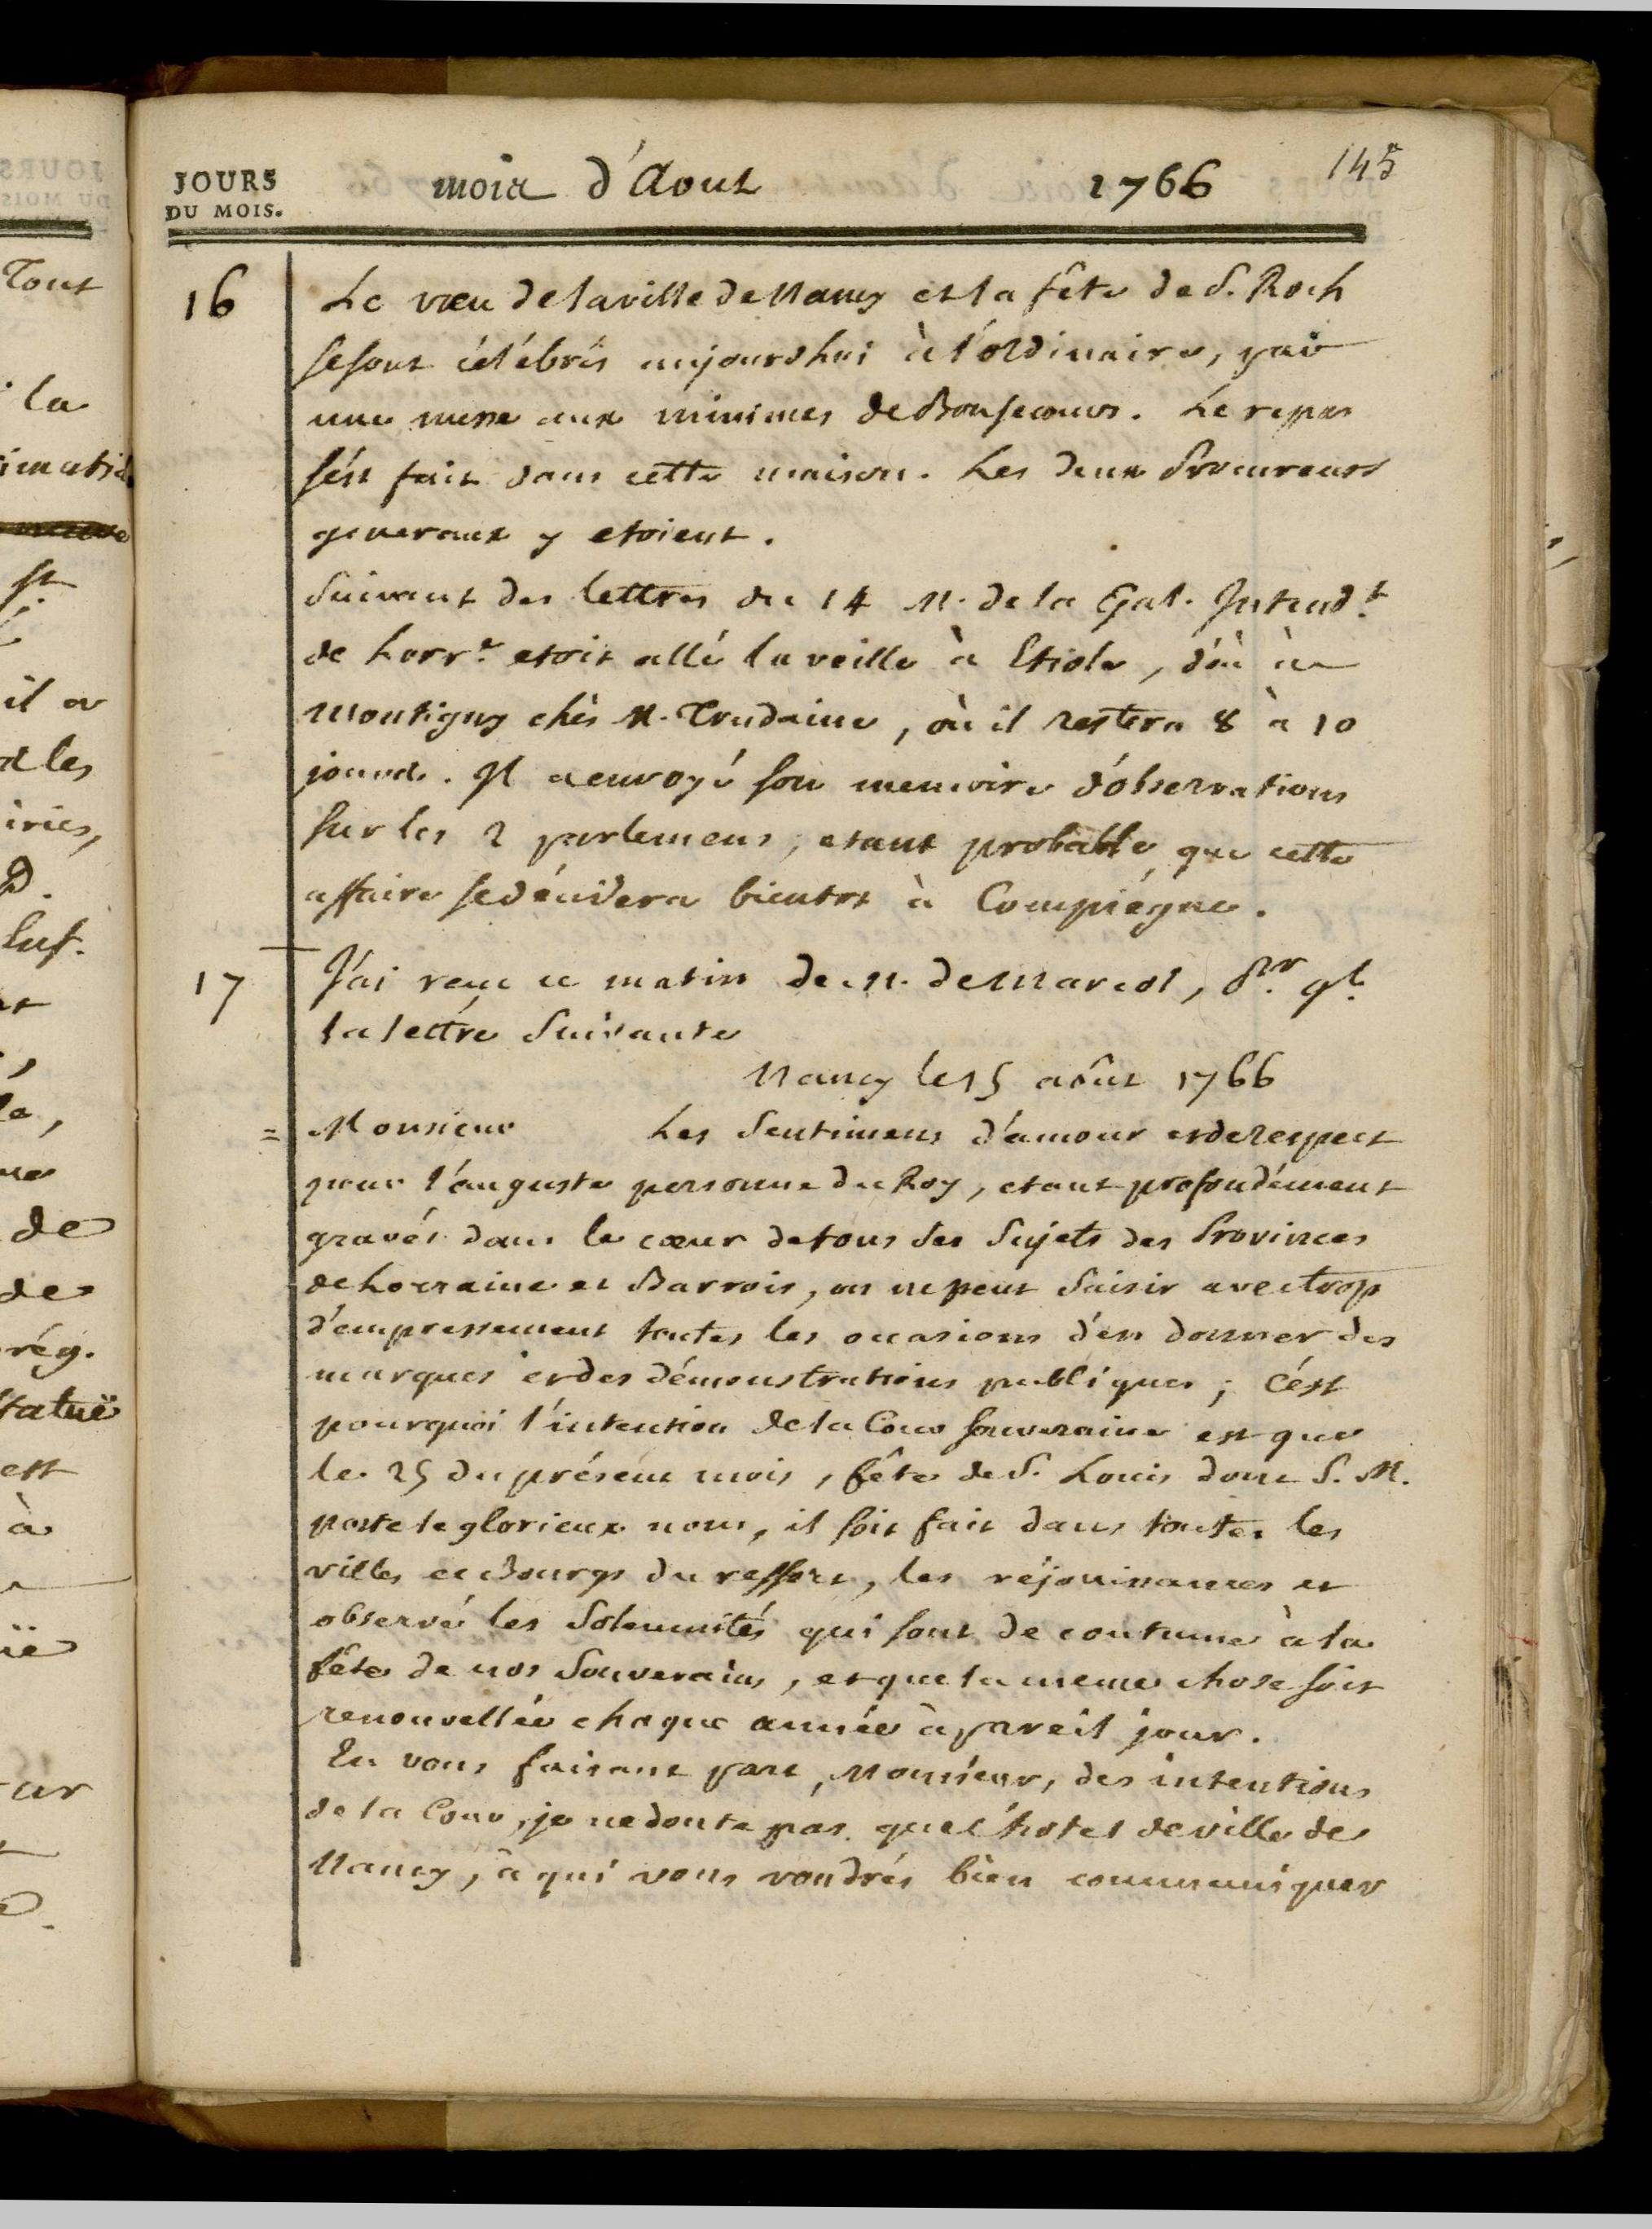 JOURS
DU MOIS.
mois d'Aout 1766 145
16 Le vœu de la ville de Nancy et la fête de S. Roch
se sont célébrés aujourdhui à l'ordinaire, par
une messe aux minimes de Bonsecours. Le repas
s'est fait dans cette maison. Les deux Procureurs
generaux y etoient.
Suivant des lettres du 14 M. de la Gal. Intend.t
de Lorr.e etoit allé la veille à Etiole, d'où à
Montigny chés M. Trudaine, où il restera 8 à 10
jours. Il a envoyé son memoire d'observations
sur les 2 parlemens, etant probable que cette
affaire se décidera bientot à Compiégne.
17 J'ai reçu ce matin de M. de Marcol, P.r g.l
la lettre suivante
Nancy le 15 août 1766
= Monsieur Les sentimens d'amour et de respect
pour l'auguste personne du Roy, etant profondément
gravés dans le cœur de tous ses sujets des Provinces
de Lorraine et Barrois, on ne peut saisir avec trop
d'empressement toutes les occasions d'en donner des
marques et des démonstrations publiques; c'est
pourquoi l'intention de la Cour souveraine est que
le 25 du présent mois, fête de S. Louis dont S. M.
porte le glorieux nom, il soit fait dans toutes les
villes et Bourgs du ressort, les réjouissances et
observé les solemnités qui sont de coutume à la
fête de nos Souverains, et que la meme chose soit
renouvellée chaque année à pareil jour.
En vous faisant part, Monsieur, des intentions
de la Cour, je ne doute pas que l'hotel de ville de
Nancy, à qui vous voudrés bien communiquer
Tout
la
il a
iries,
de
de
rég.
statuë
est
à